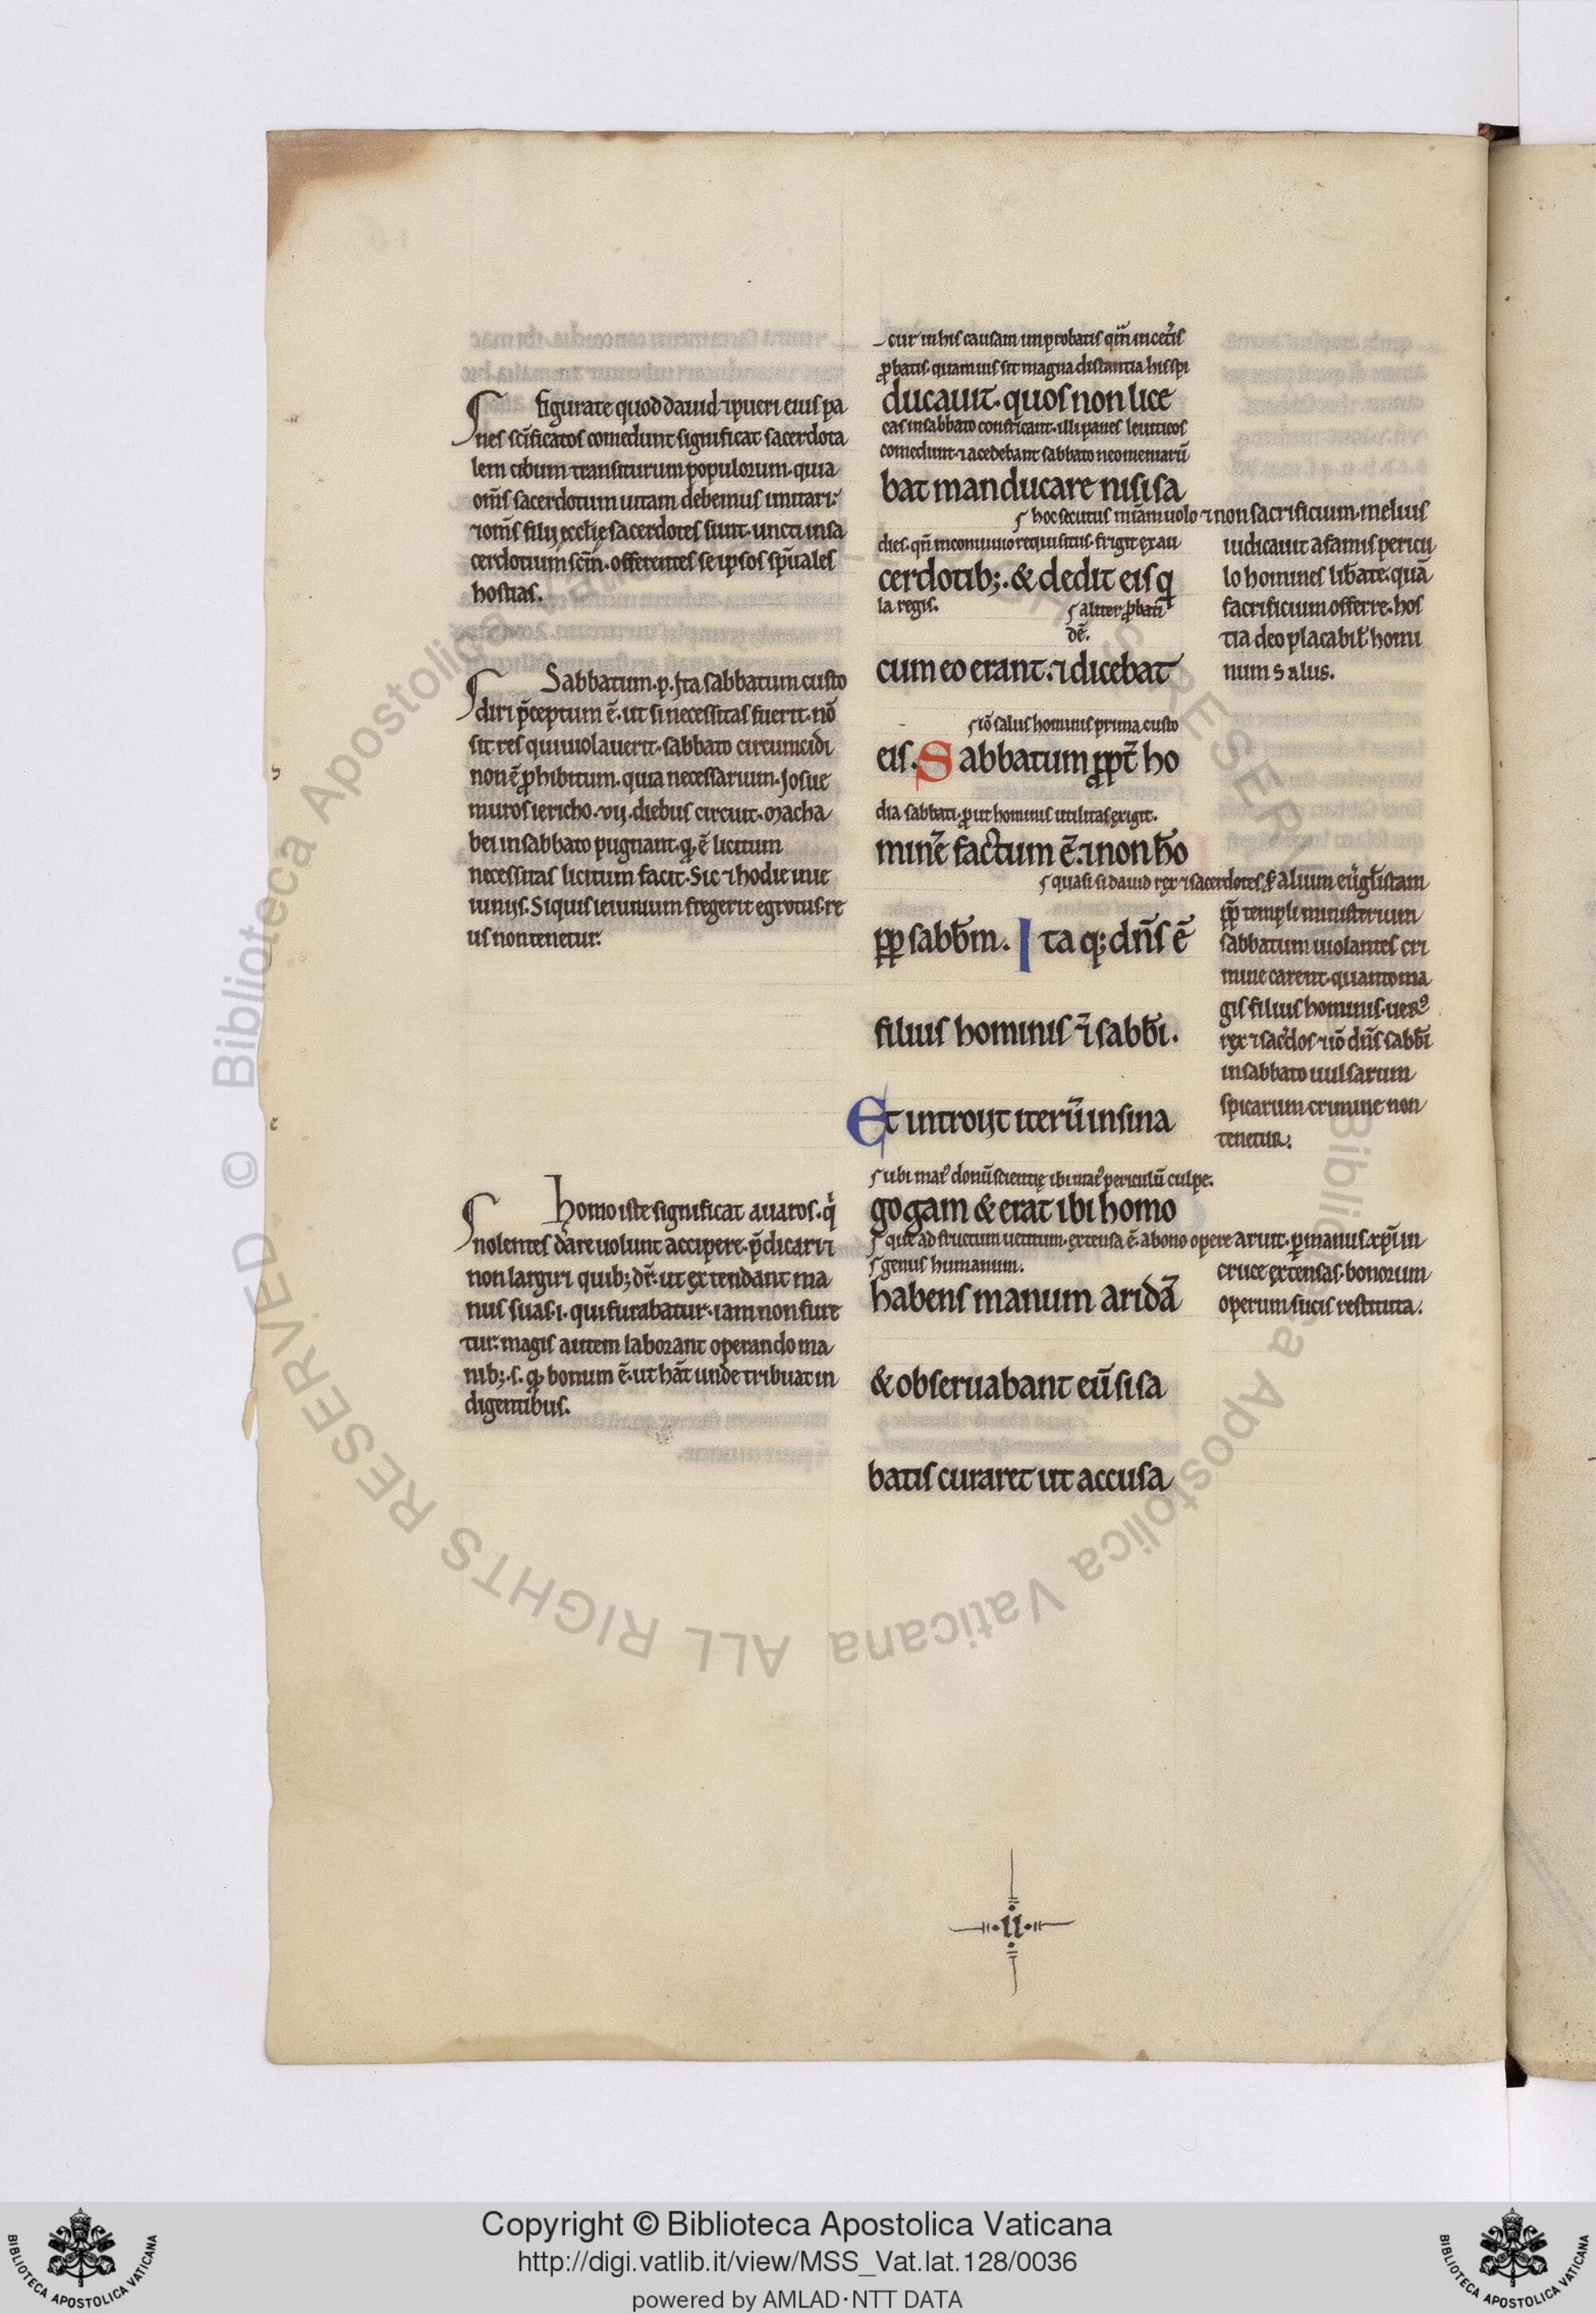 figurate quod dauid ⁊ pueri eius pa
nes sc̄ificatos comedunt significat sacerdota
lem cibum transiturum populorum. quia
om̄s sacerdotum uitam debemus imitari:
⁊ om̄s filij ęcclię sacerdotes sunt. uncti in sa
cerdotium sc̄m. offerentes se ipsos sp̄uales
hostias.
Sabbatum. p. Ita sabbatum custo
diri p̄ceptum ē. ut si necessitas fuerit. nō
sit res qui uiolauerit. sabbato circumcidi
non ē ꝓhibitum. quia necessarium. Josue
muros iericho. vij. diebus circuit. Macha
bei in sabbato pugnant. ꝙ ē licitum
necessitas licitum facit. Sic ⁊ hodie uue
iunijs. Si quis ieiunium fregerit egrotus. re
us non tenetur.
homo iste significat auaros. q̇
nolentes dare uolunt accipere. p̄dicari ⁊
non largiri quib; dr̄. ut extendant ma
nus suas. i. qui furabatur. iam non fure
tur. magis autem laborant operando ma
nib;. s. ꝙ bonum ē. ut hāt unde tribuat in
digentibus.
cur in his causam improbatis
ꝓbatis. quamuis sit magna distantia hi spi
ducauit. quos non lice
cas in sabbato confricant. illi panes leuiticos
comedunt. ⁊ acedebant sabbato neomeniarū
bat manducare nisi sa
hoc secutus mīam uolo ⁊ non sacrificium. melius
dies. qn̄ in conuiuio requisitus. frigit ex au
cerdotib;. & dedit eis q
la regis.
aliter ꝓbatū
dē.
cum eo erant. ⁊ dicebat
iō salus hominis prima custo
eis. Sabbatum ꝓpt̄ ho
dia sabbati. ꝓut hominis utilitas exigit.
minē factum ē. ⁊ non h̄o
quasi si dauid rex ⁊ sacerdotes alium eu̅gl̄istam
ꝓp̄ sabb̄m. Ita q; dn̄s ē
filius hominis ⁊̄ sabb̄i.
Et introijt iterū in sina
ubi mai᷒ donū scientię ibi mai᷒ periculū culpe.
gogam & erat ibi homo
que ad fructum uetitum. extensa ē. a bono opere aruit. ꝑ manus xp̄i in
genus humanum.
habens manum aridā
& obseruabant eū si sa
batis curaret ut accusa
iudicauit a famis pericu
lo homines lib̄are. quā
sacrificium offerre. hos
tia deo placabil᷒ homi
num salus.
ꝓp̄ templi ministerium
sabbatum uiolantes cri
mine carent. quanto ma
gis filius hominis. uer᷒
rex ⁊ sac̄dos ⁊ iō dn̄s sabb̄i
in sabbato uulsarum
spicarum crimine non
tenetur.
cruce extensas. bonorum
operum sucis restituta.
.ii.
© Biblioteca Apostolica Vaticana ALL RIGHTS RESERVED
BIBLIOTECA APOSTOLICA VATICANA
Copyright © Biblioteca Apostolica Vaticana
http://digi.vatlib.it/view/MSS_Vat.lat.128/0036
powered by AMLAD·NTT DATA
BIBLIOTECA APOSTOLICA VATICANA